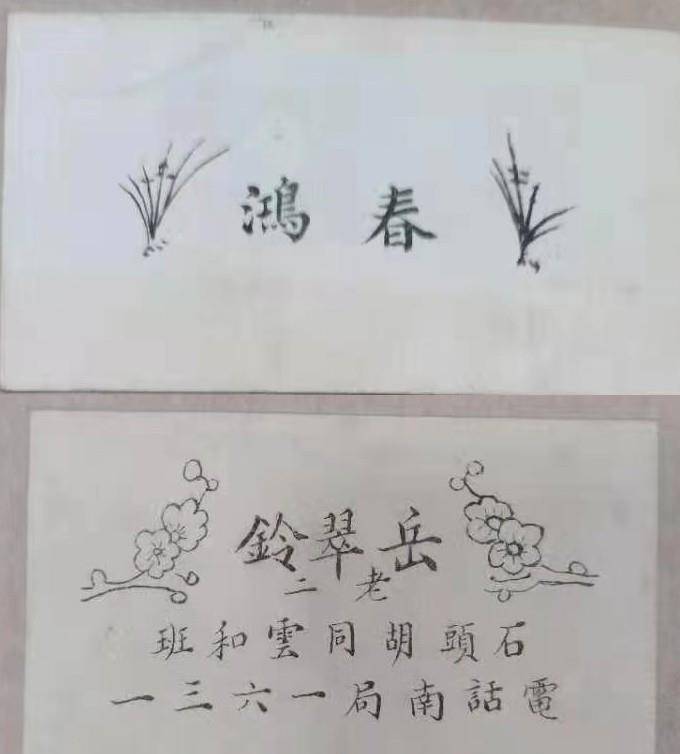 春鴻
岳翠鈴
老二
石頭胡同雲和班
電話南局一六三一